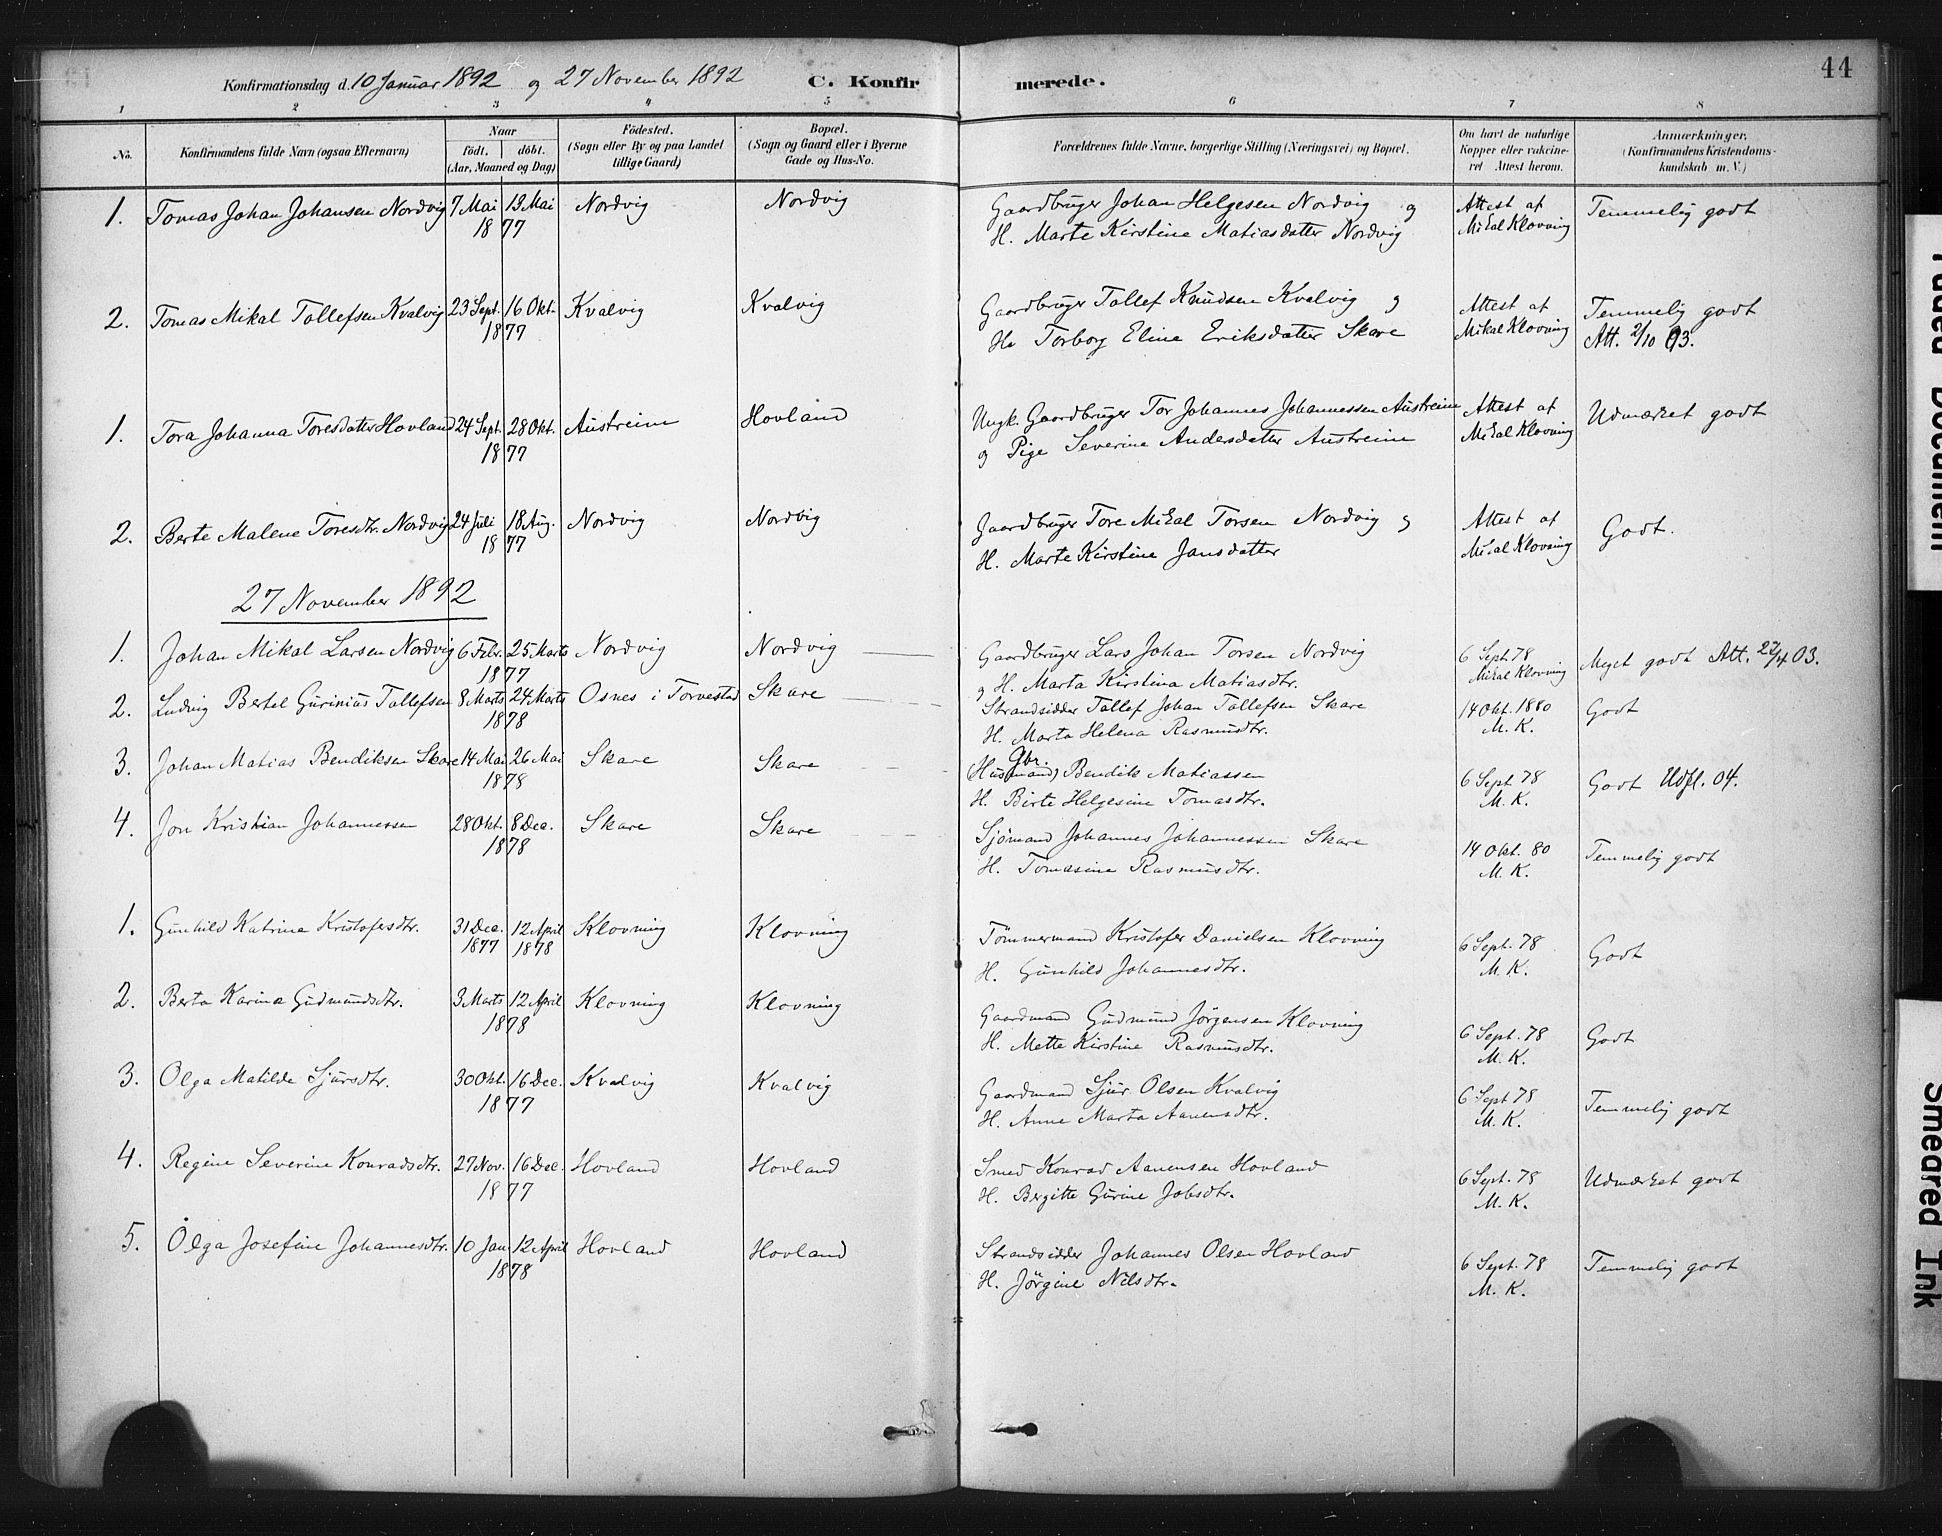 44
Konfirmationsdag d. 10 Januar 1892 og 27 November 1892 C. Konfirmerede.
1 2 3 4 5 6 7 8
No. Konfirmandens fulde Navn (ogsaa Efternavn) Naar født. døbt. (Aar, Maaned og Dag) Fødested. (Sogn eller By og paa Landet tillige Gaard) Bopæl. (Sogn og Gaard eller i Byerne Gade og Hus-No. Forældrenes fulde Navne, borgerlige Stilling (Næringsvei) og Bopæl. Om havt de naturlige Kopper eller vaccineret Attest herom. Anmærkninger. (Konfirmandens Kristendomskundskab m. V.)
1. Tomas Johan Johansen Nordvig 7 Mai 13 Mai 1877 Nordvig Nordvig Gaardbruger Johan Helgesen Nordvig og Attest af Temmelig godt
H. Marte Kirstine Matiasdatter Nordvig Mikal Klovning
2. Tomas Mikal Tollefsen Kvalvig 23 Sept. 16 Okt. 1877 Kvalvig Kvalvig Gaardbruger Tollef Knudsen Kvalvig og Attest af Temmelig godt
H. Torborg Eline Eriksdatter Skare Mikal Klovning Att. 2/10 93.
1. Tora Johanna Toresdatter Hovland 24 Sept. 28 Okt. 1877 Austreim Hovland Ungk. Gaardbruger Tor Johannes Johannessen Austreim Attest af Udmærket godt
og Pige Severine Andersdatter Austreim Mikal Klovning
2. Berte Malene Toresdtr. Nordvig 24 Juli 18 Aug. 1877 Nordvig Nordvig Gaardbruger Tore Mikal Torsen Nordvig og Attest af Godt.
H. Marte Kirstine Jansdatter Mikal Klovning
27 November 1892
1. Johan Mikal Larsen Nordvig 6 Febr. 25 Marts 1877 Nordvig Nordvig Gaardbruger Lars Johan Torsen Nordvig 6 Sept. 78 Meget godt Att. 22/4 03.
og H. Marta Kirstina Matiasdtr. Mikal Klovning
2. Ludvig Bertel Gurinius Tollefsen 8 Marts 24 Marts 1878 Osnes i Torvestad Skare Strandsidder Tollef Johan Tollefsen Skare 14 Okt. 1880 Godt
H. Marta Helena Rasmusdtr. M. K.
3. Johan Matias Bendiksen Skare 14 Mai 26 Mai 1878 Skare Skare Gbr. (Husmand) Bendik Matiassen 6 Sept 78 Godt Udfl. 04.
H. Birte Helgesine Tomasdtr. M. K.
4. Jon Kristian Johannessen 28 Okt. 8 Dec. 1878 Skare Skare Sjömand Johannes Johannessen Skare 14 Okt. 80 Temmelig godt
H. Tomasine Rasmusdtr. M. K.
1. Gunhild Katrine Kristofersdtr. 31 Dec. 1877 12 April 1878 Klovning Klovning Tömmermand Kristofer Danielsen Klovning 6 Sept. 78 Godt
H. Gunhild Johannesdtr. M. K.
2. Berta Karina Gudmundsdtr. 3 Marts 12 April 1878 Klovning Klovning Gaardmand Gudmund Jörgensen Klovning 6 Sept. 78 Godt
H. Mette Kirstine Rasmusdtr. M. K.
3. Olga Matilde Sjursdtr. 30 Okt. 16 Dec. 1877 Kvalvig Kvalvig Gaardmand Sjur Olsen Kvalvig 6 Sept 78 Temmelig godt
H. Anne Marta Aanensdtr. M. K.
4. Regine Severine Konradsdtr. 27 Nov. 16 Dec. 1877 Hovland Hovland Smed Konrad Aanensen Hovland 6 Sept. 78 Udmærket godt
H. Bergitte Gurine Jobsdtr. M. K.
5. Olga Josefine Johannesdtr. 10 Jan 12 April 1878 Hovland Hovland Strandsidder Johannes Olsen Hovland 6 Sept. 78 Temmelig godt
H. Jörgine Nilsdtr. M. K.
Faded Document
Smeared Ink